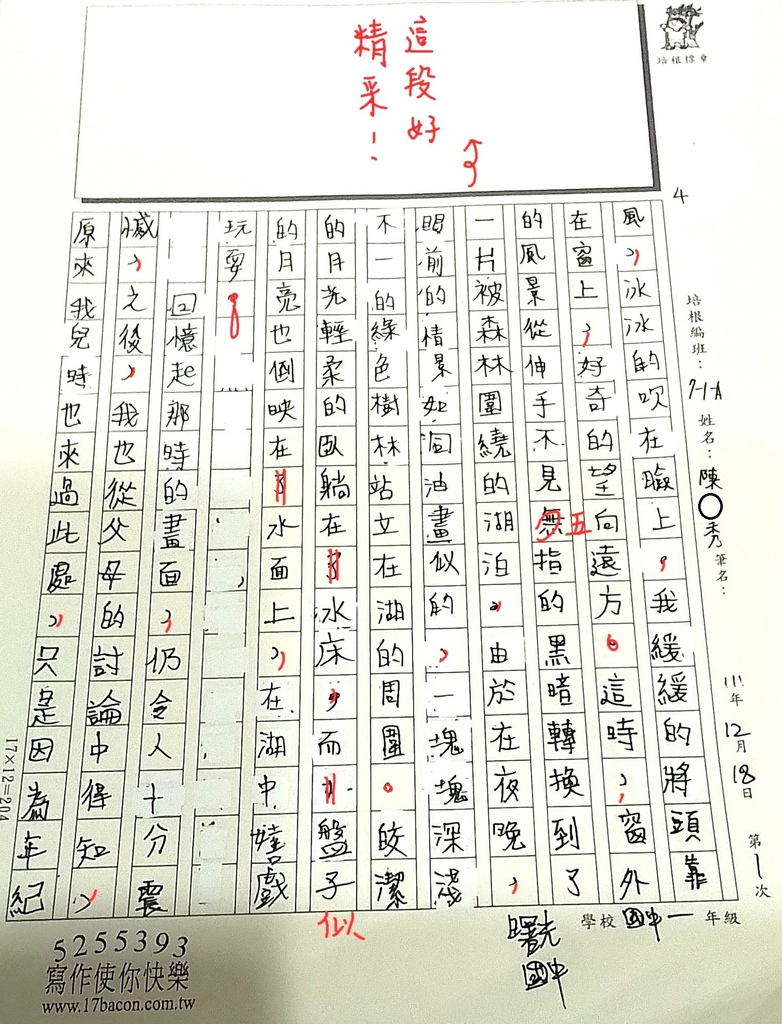 這段好
精采！
培根標章
4
培根編班：7-1-A 姓名：陳○秀 筆名：
111年12月18日 第1次
風，冰冰的吹在臉上，我緩緩的將頭靠
在窗上，好奇的望向遠方。這時，窗外
的風景從伸手不見無指的黑暗轉換到了
五
一片被森林圍繞的湖泊，由於在夜晚，
眼前的情景如同油畫似的，一塊塊深淺
不一的綠色樹林站立在湖的周圍。皎潔
的月光輕柔的臥躺在了冰床，而，盤子
似
的月亮也倒映在了水面上，在湖中嬉戲
玩耍。
回憶起那時的畫面，仍令人十分震
憾，之後，我也從父母的討論中得知，
原來我兒時也來過此處，只是因為年紀
17×12=204
學校 國中一 年級
曙光
國中
5255393
寫作使你快樂
www.17bacon.com.tw